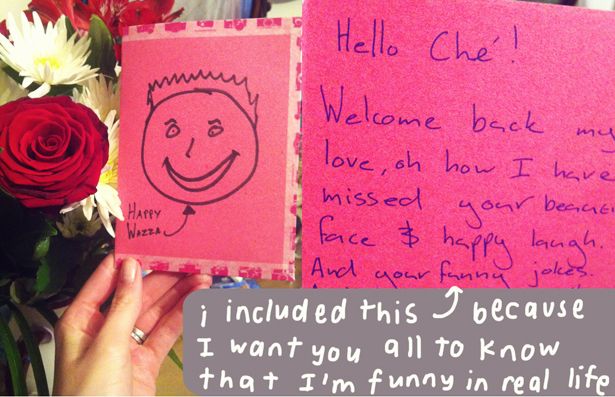 HAPPY
WAZZA
Hello Ché!
Welcome back my
love, oh how I have
missed your
face & happy laugh.
And your funny jokes.
i included this because
I want you all to know
that I'm funny in real life